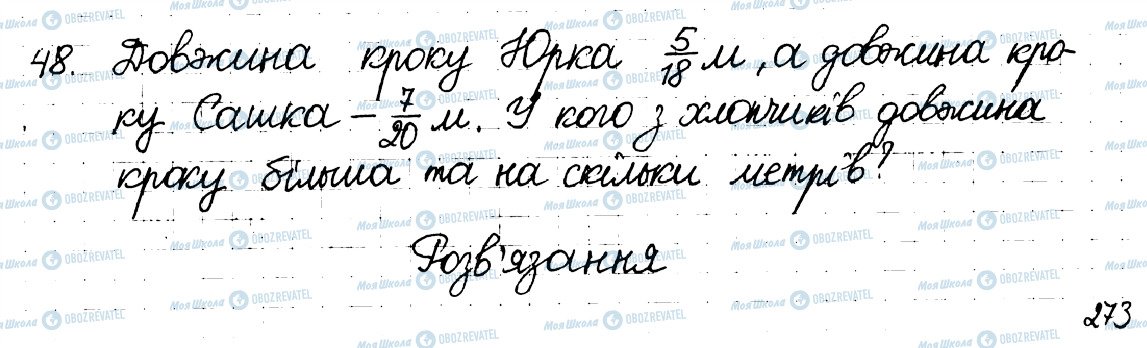 48. Довжина кроку Юрка 5/18 м, а довжина кро-
ку Сашка – 7/20 м. У кого з хлопчиків довжина
кроку більша та на скільки метрів?
Розв'язання
273
МояШкола OBOZREVATEL